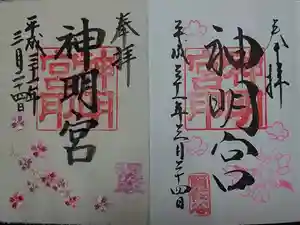 奉拝
神明宮
平成三十一年
三月二十四日
奉拝
神明宮
平成三十一年三月二十四日